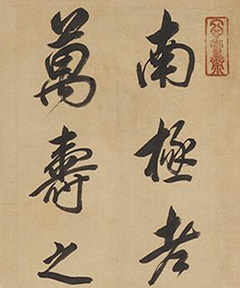 南極老
萬壽之